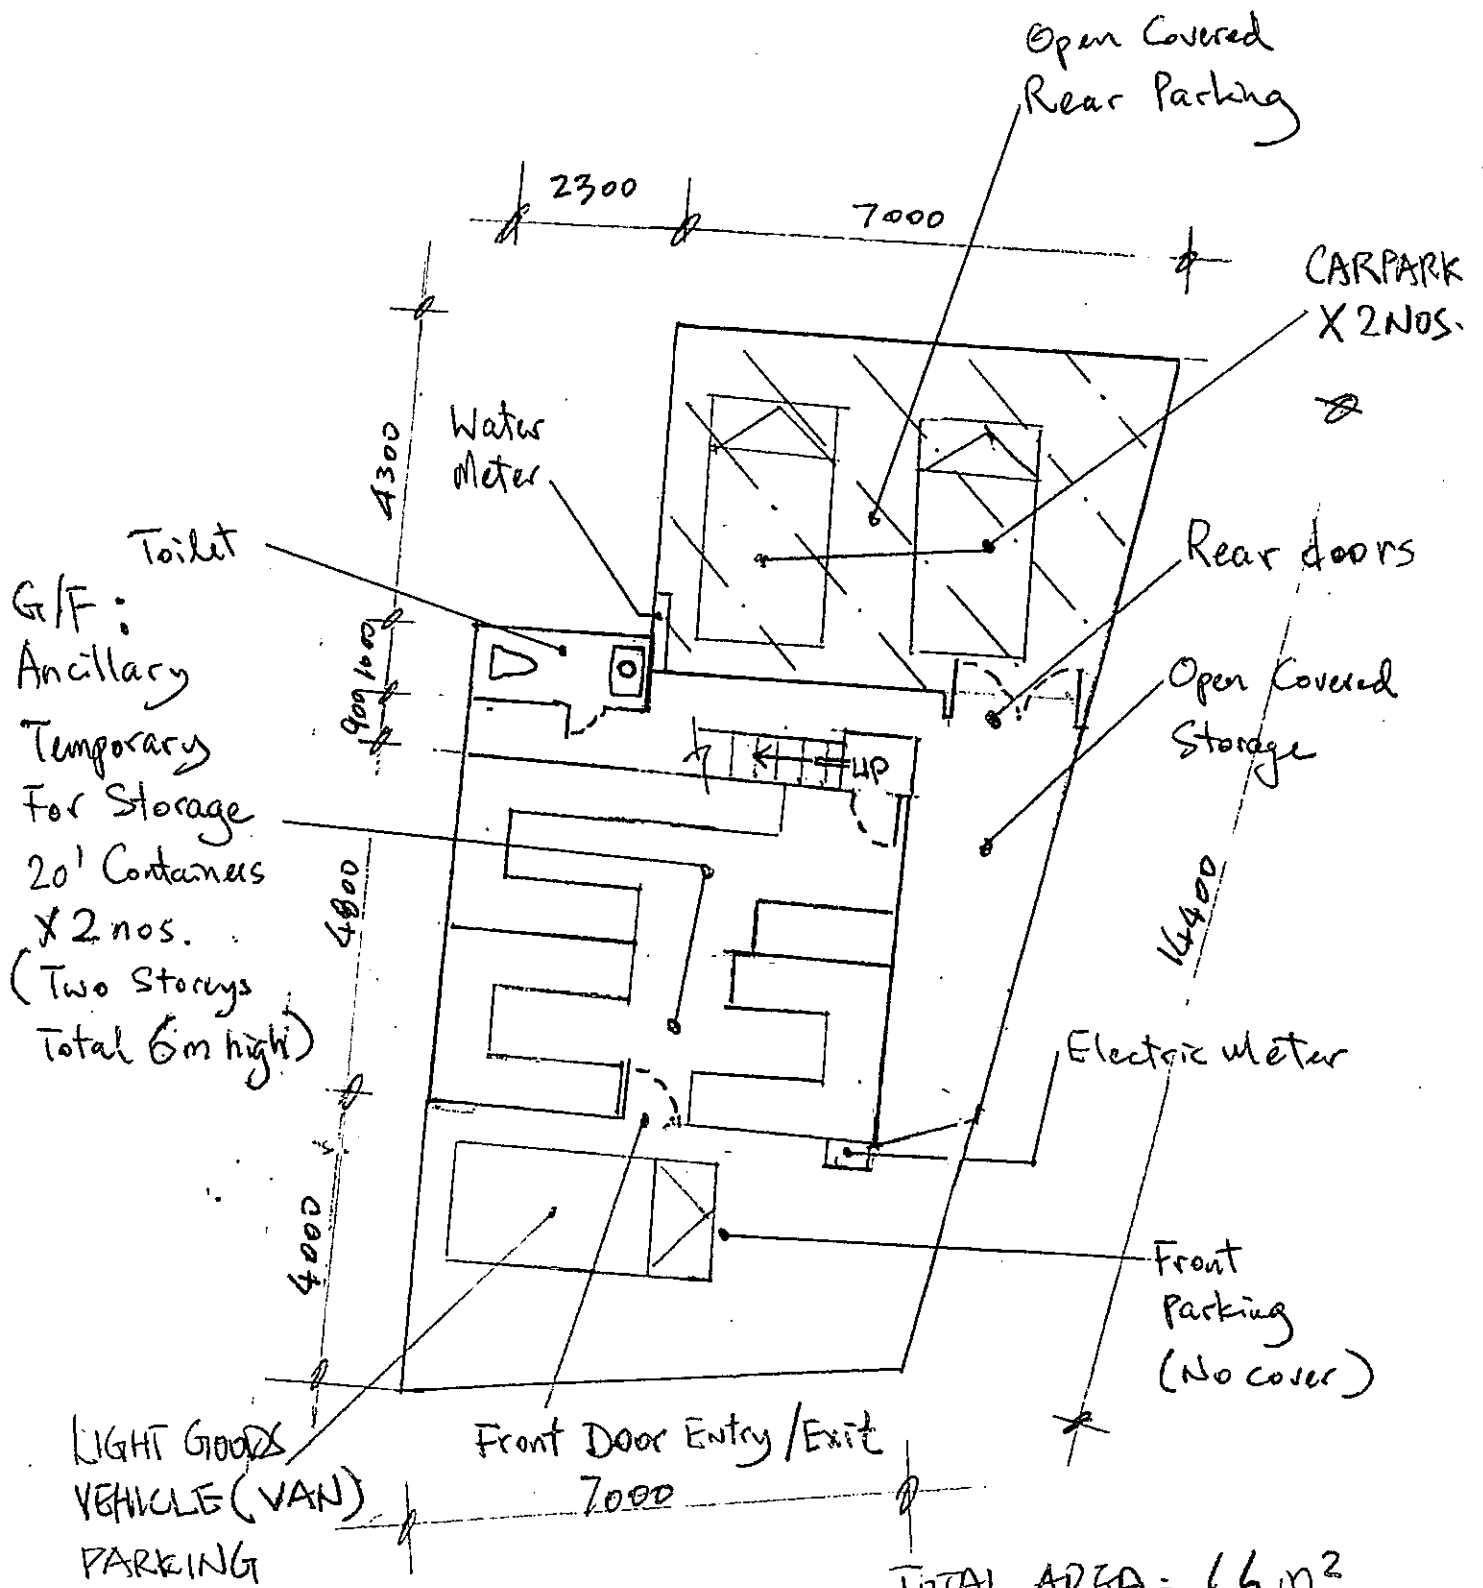 Open Covered
Rear Parking
2300
7000
CARPARK
X 2NOS.
Water
Meter
4300
Toilet
Rear doors
G/F:
Ancillary
Temporary
For Storage
20' Containers
X 2 nos.
(Two Storeys
Total 6m high)
1000
900
Open Covered
Storage
UP
4800
14400
Electric Meter
4000
Front
Parking
(No cover)
LIGHT GOODS
VEHICLE (VAN)
PARKING
Front Door Entry/Exit
7000
TOTAL AREA: